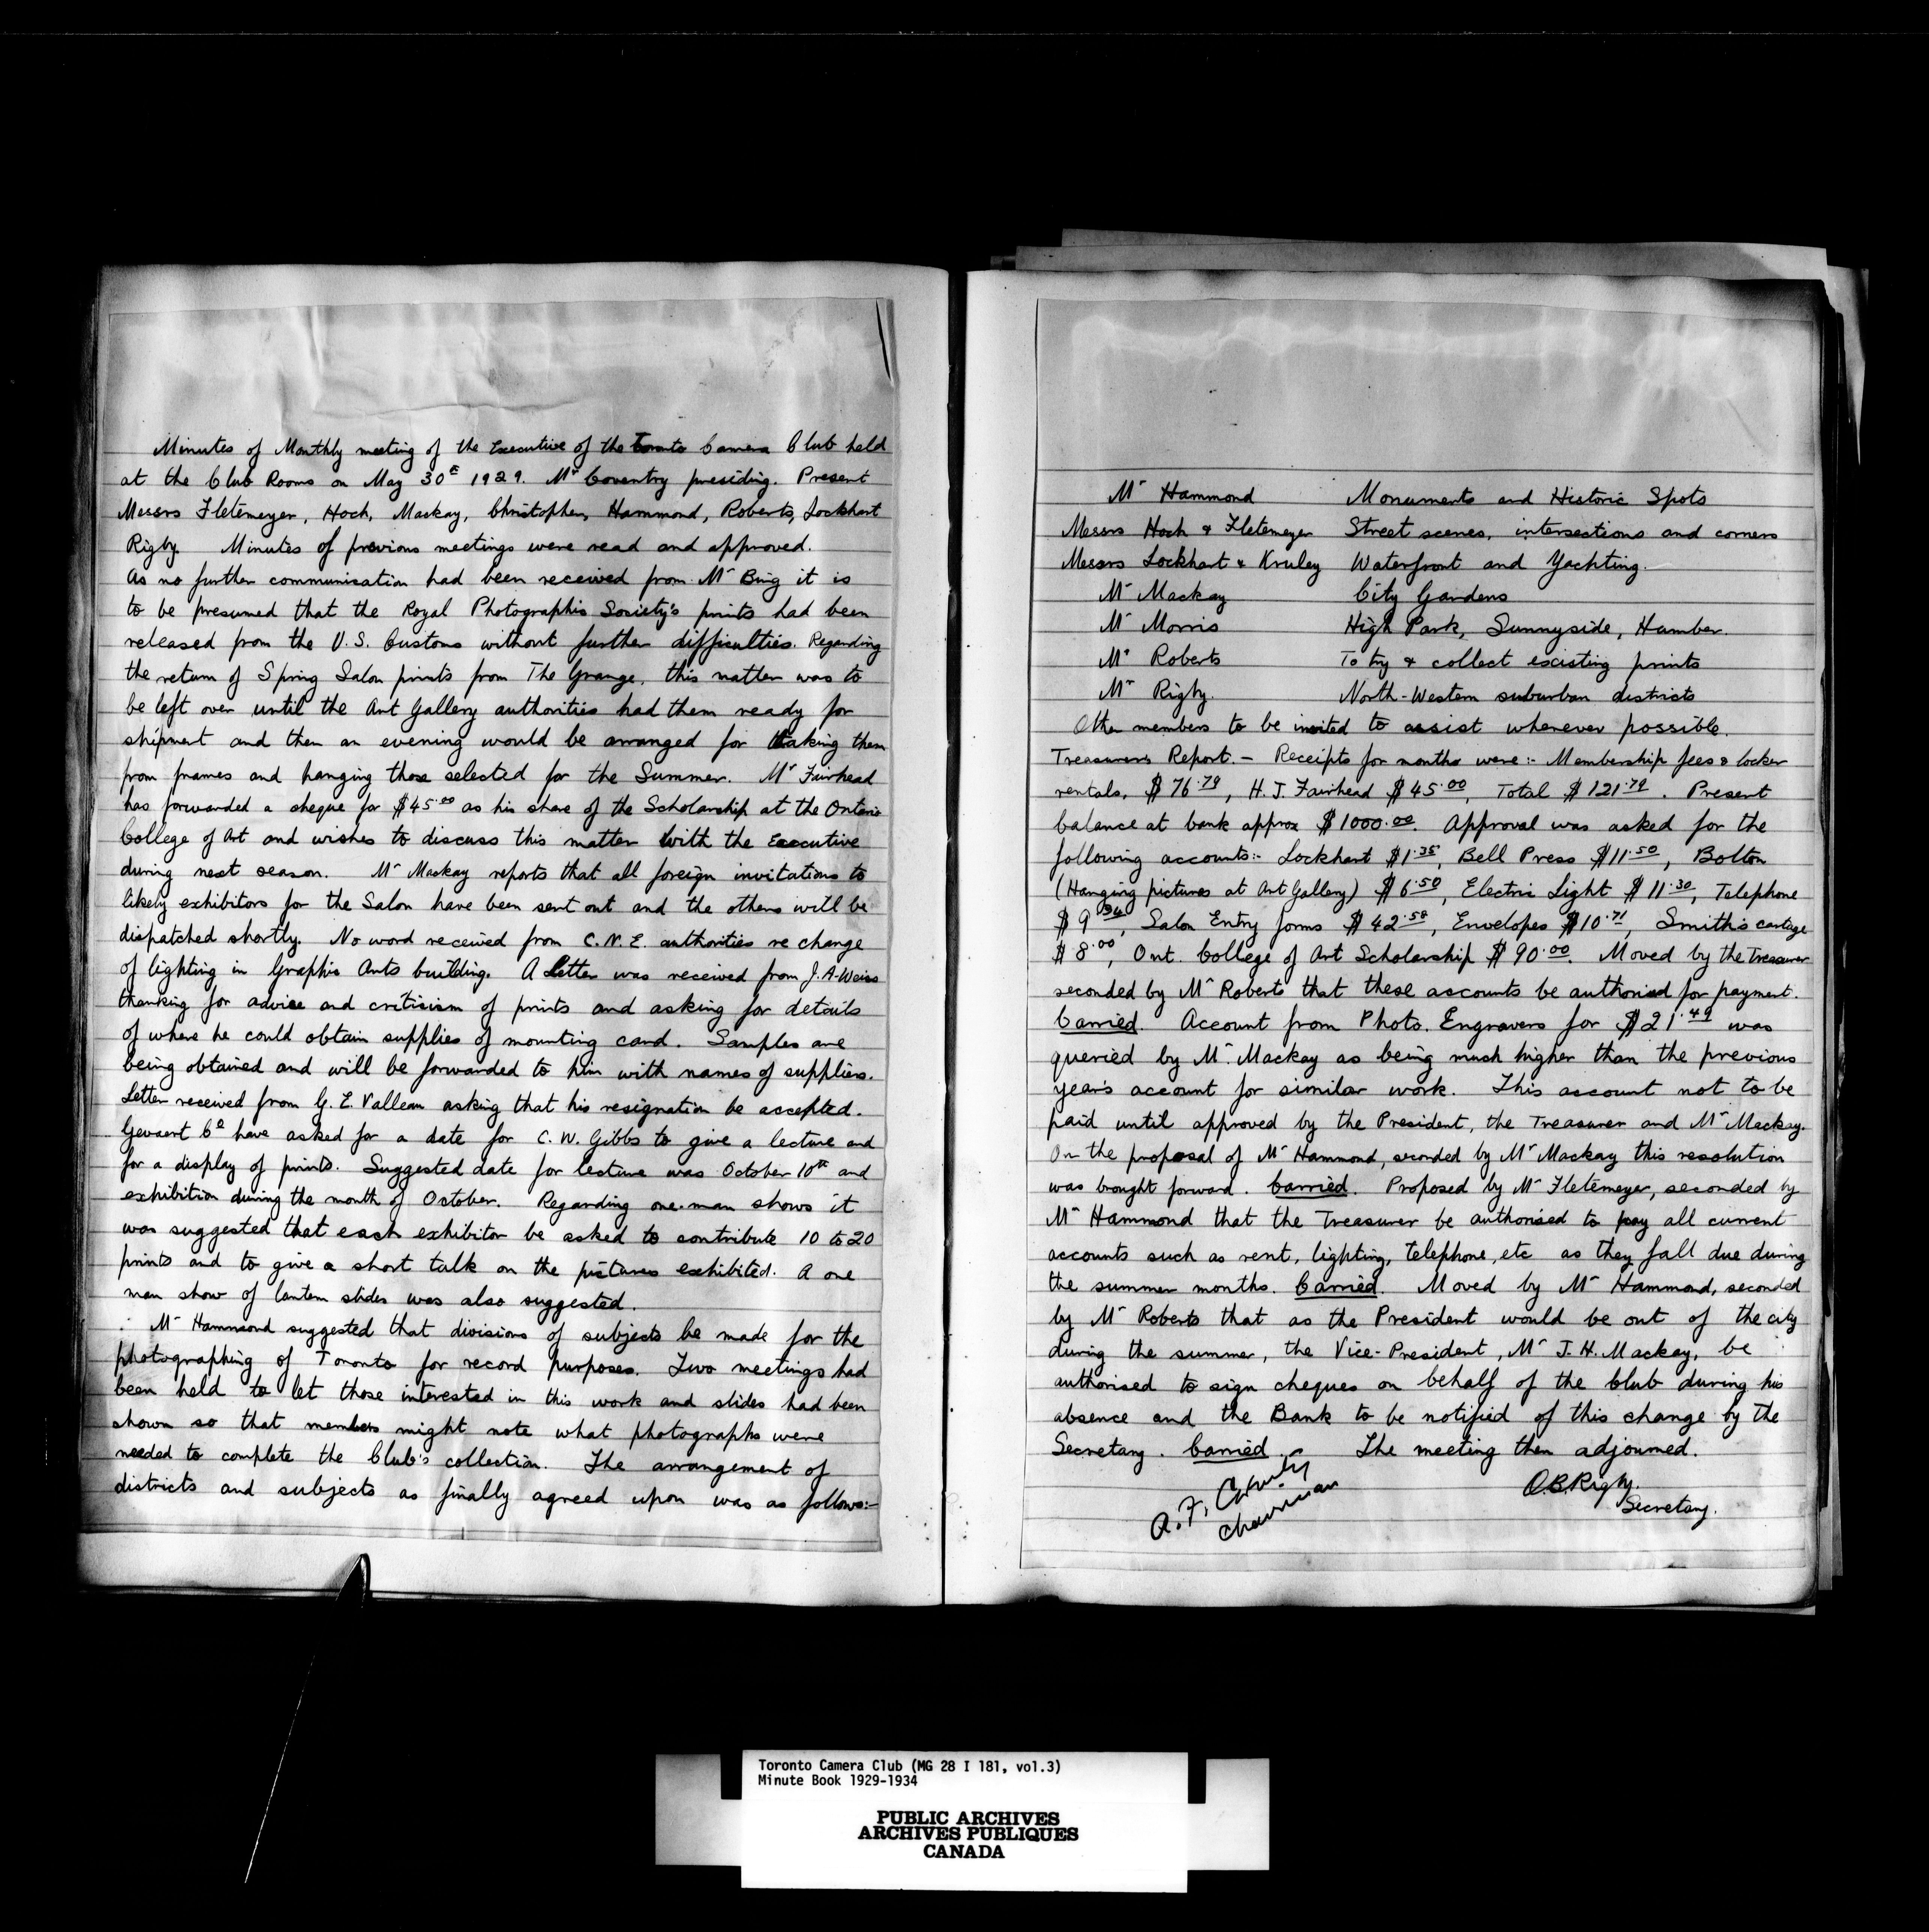 Minutes of Monthly meeting of the Executive of the Toronto Camera Club held
at the Club Rooms on May 30th 1929. Mr Coventry presiding. Present
Messrs Fletemeyer, Hoch, Mackay, Christopher, Hammond, Roberts, Lockhart
Rigby. Minutes of previous meetings were read and approved.
As no further communication had been received from Mr Bing it is
to be presumed that the Royal Photographic Society's prints had been
released from the U.S. Customs without further difficulties. Regarding
the return of Spring Salon prints from The Grange, this matter was to
be left over until the Art Gallery authorities had them ready for
shipment and then an evening would be arranged for taking them
from frames and hanging those selected for the Summer. Mr Fairhead
has forwarded a cheque for $45.00 as his share of the Scholarship at the Ontario
College of Art and wishes to discuss this matter with the Executive
during next season. Mr Mackay reports that all foreign invitations to
likely exhibitors for the Salon have been sent out and the others will be
dispatched shortly. No word received from C.N.E. authorities re change
of lighting in Graphic Arts building. A Letter was received from J.A. Weiss
thanking for advice and criticism of prints and asking for details
of where he could obtain supplies of mounting card. Samples are
being obtained and will be forwarded to him with names of suppliers.
Letter received from G.E. Valleau asking that his resignation be accepted.
Gevaert Co have asked for a date for C.W. Gibbs to give a lecture and
for a display of prints. Suggested date for lecture was October 10th and
exhibition during the month of October. Regarding one-man shows it
was suggested that each exhibitor be asked to contribute 10 to 20
prints and to give a short talk on the pictures exhibited. A one
man show of lantern slides was also suggested.
Mr Hammond suggested that divisions of subjects be made for the
photographing of Toronto for record purposes. Two meetings had
been held to let those interested in this work and slides had been
shown so that members might note what photographs were
needed to complete the Club's collection. The arrangement of
districts and subjects as finally agreed upon was as follows:-
Mr Hammond Monuments and Historic Spots
Messrs Hoch & Fletemeyer Street scenes, intersections and corners
Messrs Lockhart & Kruley Waterfront and Yachting.
Mr Mackay City Gardens
Mr Morris High Park, Sunnyside, Humber.
Mr Roberts To try & collect existing prints
Mr Rigby. North-Western suburban districts
Other members to be invited to assist whenever possible.
Treasurers Report. - Receipts for months were:- Membership fees & locker
rentals, $76.79, H.J. Fairhead $45.00, Total $121.79. Present
balance at bank approx $1000.00. Approval was asked for the
following accounts:- Lockhart $1.35, Bell Press $11.50, Bolton
(Hanging pictures at Art Gallery) $6.50, Electric Light $11.30, Telephone
$9.34, Salon Entry forms $42.58, Envelopes $10.71, Smith's cartage
$8.00, Ont. College of Art Scholarship $90.00. Moved by the Treasurer
seconded by Mr Roberts that these accounts be authorised for payment.
Carried. Account from Photo. Engravers for $21.49 was
queried by Mr. Mackay as being much higher than the previous
year's account for similar work. This account not to be
paid until approved by the President, the Treasurer and Mr Mackay.
On the proposal of Mr Hammond, seconded by Mr Mackay this resolution
was brought forward. Carried. Proposed by Mr Fletemeyer, seconded by
Mr Hammond that the Treasurer be authorised to pay all current
accounts such as rent, lighting, telephone, etc as they fall due during
the summer months. Carried. Moved by Mr Hammond, seconded
by Mr Roberts that as the President would be out of the city
during the summer, the Vice-President, Mr J.H. Mackay, be
authorised to sign cheques on behalf of the Club during his
absence and the Bank to be notified of this change by the
Secretary. Carried. The meeting then adjourned.
A.F.
Chairman
O.B. Rigby.
Secretary.
Toronto Camera Club (MG 28 I 181, vol.3)
Minute Book 1929-1934
PUBLIC ARCHIVES
ARCHIVES PUBLIQUES
CANADA